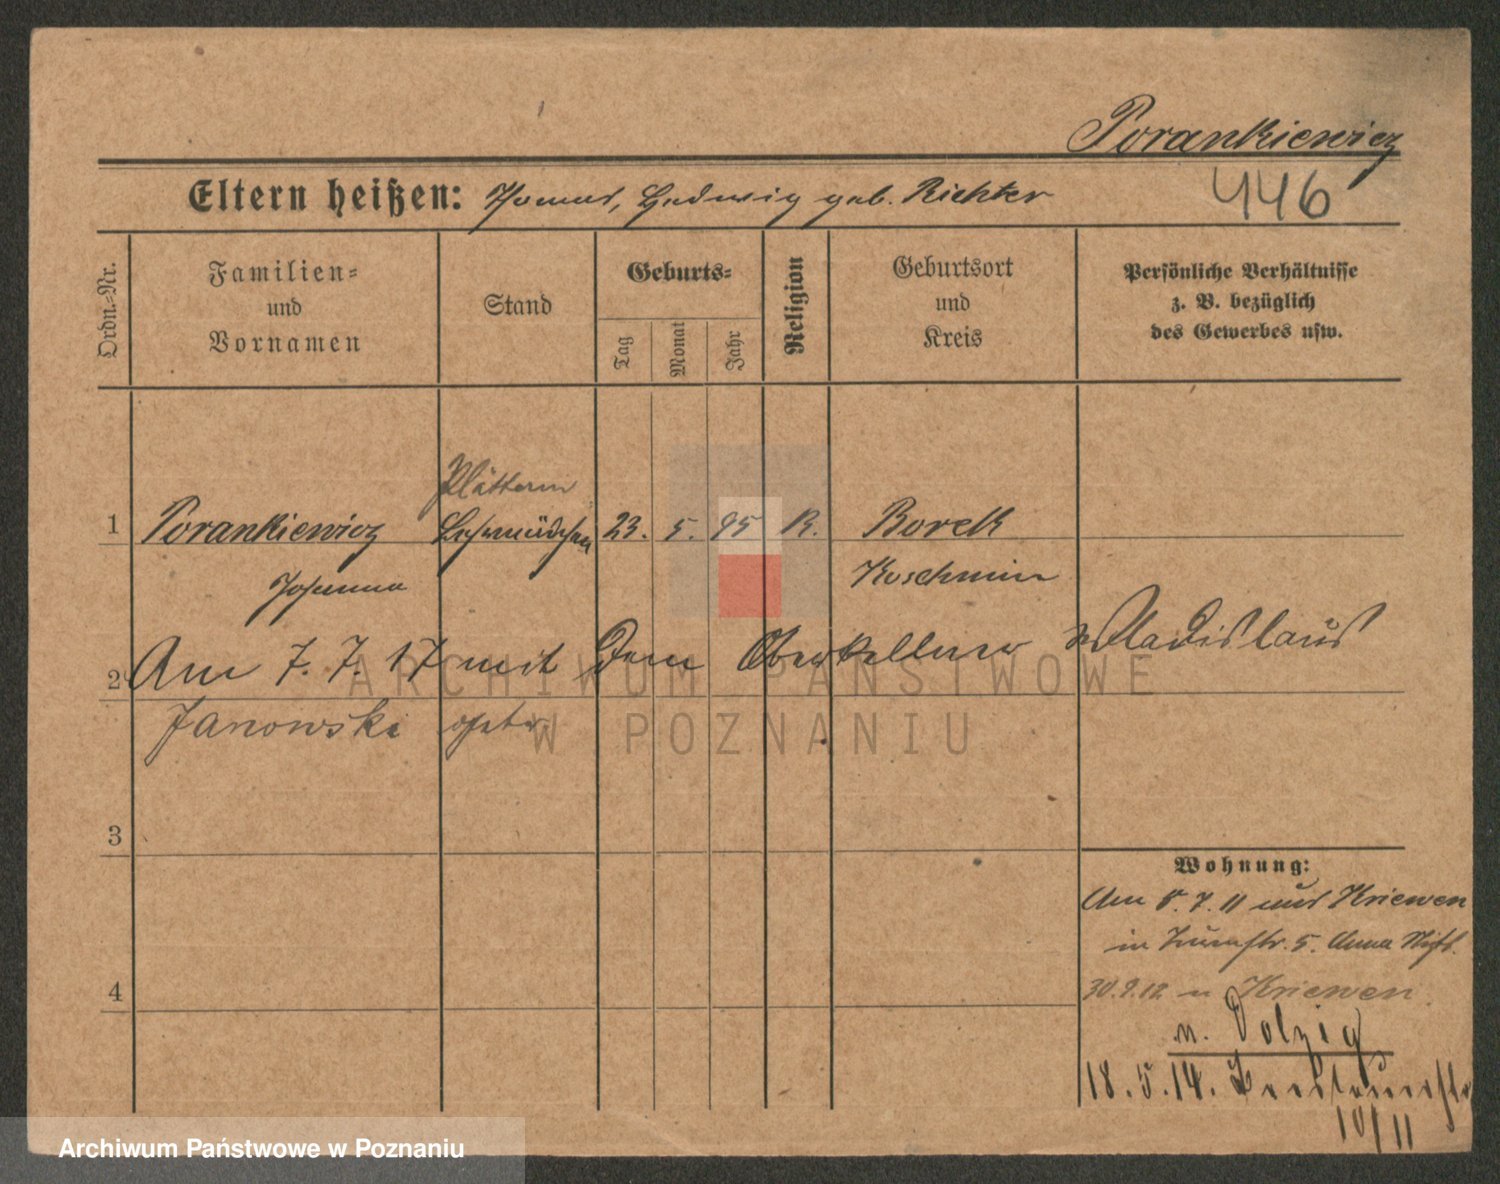 Porankiewicz
Eltern heißen: Thomas, Hedwig geb. Richter
446
Ordn.=Nr.
Familien=
und
Vornamen
Stand
Geburts=
Tag
Monat
Jahr
Religion
Geburtsort
und
Kreis
Persönliche Verhältnisse
z. B. bezüglich
des Gewerbes usw.
Plätterin
1 Porankiewicz Lehrmädchen 23. 5. 95 K. Borek
Johanna Koschmin
2 Am 7. 7. 17 mit dem Oberkellner Wladislaus
Janowski
ARCHIWUM PAŃSTWOWE
W POZNANIU
3
Wohnung:
Am 5. 7. 11 aus Kriewen
in Turmstr. 5. Anna
4
30.9.12 n Kriewen
n. Dolzig
18. 5. 14.
10/11
Archiwum Państwowe w Poznaniu